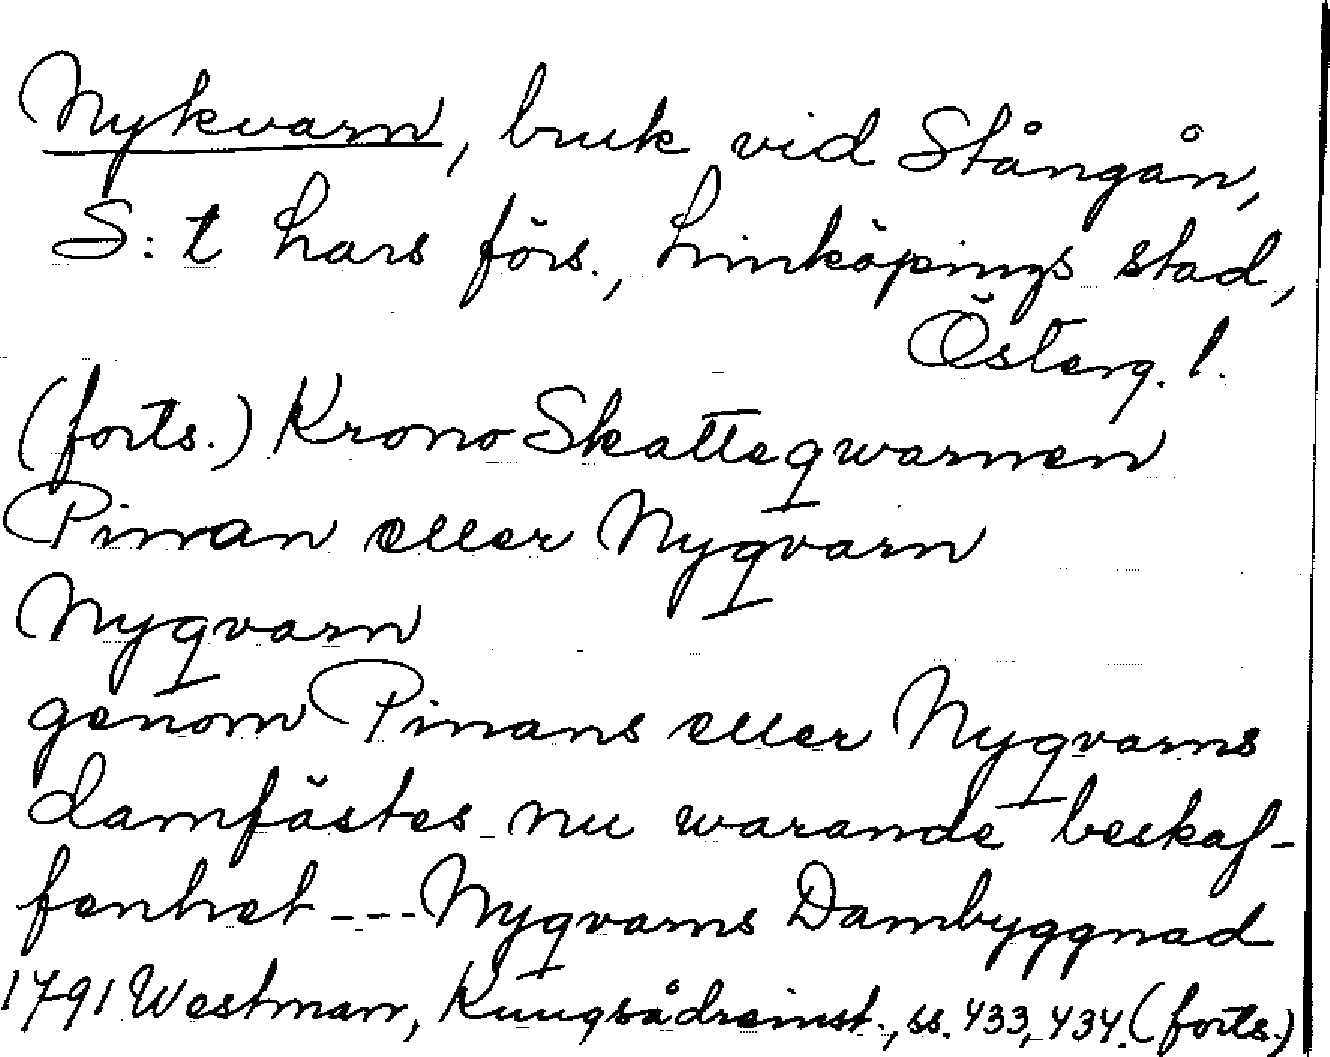 Nykvarn, bruk vid Stångån,
S:t Lars förs., Linköpings stad,
Österg. l.
(forts.) Krono Skatteqwarnen
Pinan eller Nyqvarn
Nyqvarn
genom Pinans eller Nyqvarns
damfästes nu warande beskaf-
fenhet --- Nyqvarns Dambyggnad
1791 Westman, Kungsådreinst., ss. 433, 434. (forts.)